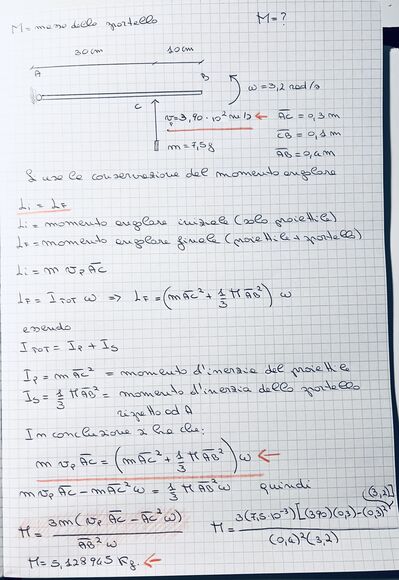 M = massa dello sportello
M = ?
30 cm
10 cm
A
B
C
ω = 3,2 rad/s
v_P = 3,90·10² m/s
m = 7,5 g
A̅C̅ = 0,3 m
C̅B̅ = 0,1 m
A̅B̅ = 0,4 m
Si usa la conservazione del momento angolare
Li = LF
Li = momento angolare iniziale (solo proiettile)
LF = momento angolare finale (proiettile + sportello)
Li = m v_P A̅C̅
LF = I_TOT ω => LF = (mA̅C̅² + 1/3 M A̅B̅²) ω
essendo
I_TOT = I_P + I_S
I_P = m A̅C̅² = momento d'inerzia del proiettile
I_S = 1/3 M A̅B̅² = momento d'inerzia dello sportello
rispetto ad A
In conclusione si ha che:
m v_P A̅C̅ = (mA̅C̅² + 1/3 M A̅B̅²) ω
m v_P A̅C̅ - mA̅C̅² ω = 1/3 M A̅B̅² ω quindi
M = 3m (v_P A̅C̅ - A̅C̅² ω) / A̅B̅² ω
M = 3(7,5·10⁻³) [(390)(0,3) - (0,3)² (3,2)] / (0,4)² (3,2)
M = 5,128945 Kg.